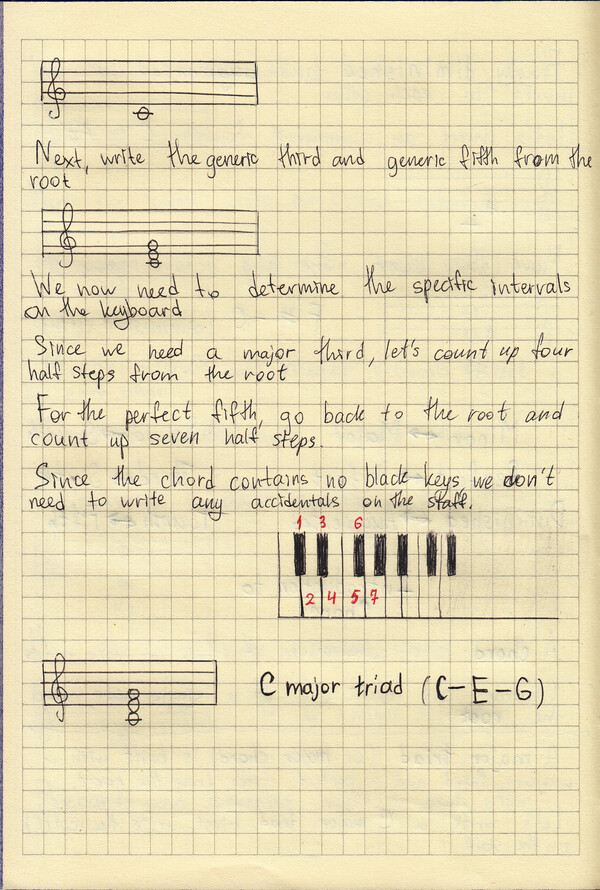 Next, write the generic third and generic fifth from the
root
We now need to determine the specific intervals
on the keyboard
Since we need a major third, let's count up four
half steps from the root
For the perfect fifth, go back to the root and
count up seven half steps.
Since the chord contains no black keys, we don't
need to write any accidentals on the staff.
1 3 6
2 4 5 7
C major triad (C-E-G)